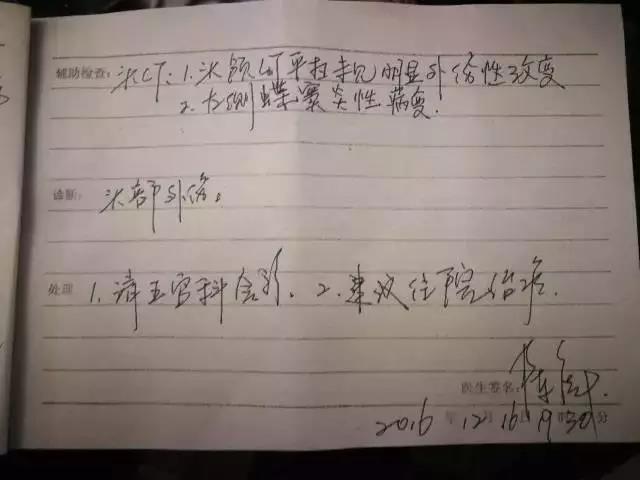 辅助检查：头CT：1.头颅CT平扫未见明显外伤性改变
2.左侧蝶窦炎性病变.
诊断： 头部外伤。
处理 1.请五官科会诊、2.建议住院治疗.
医生签名：
2016年12月16日19时30分